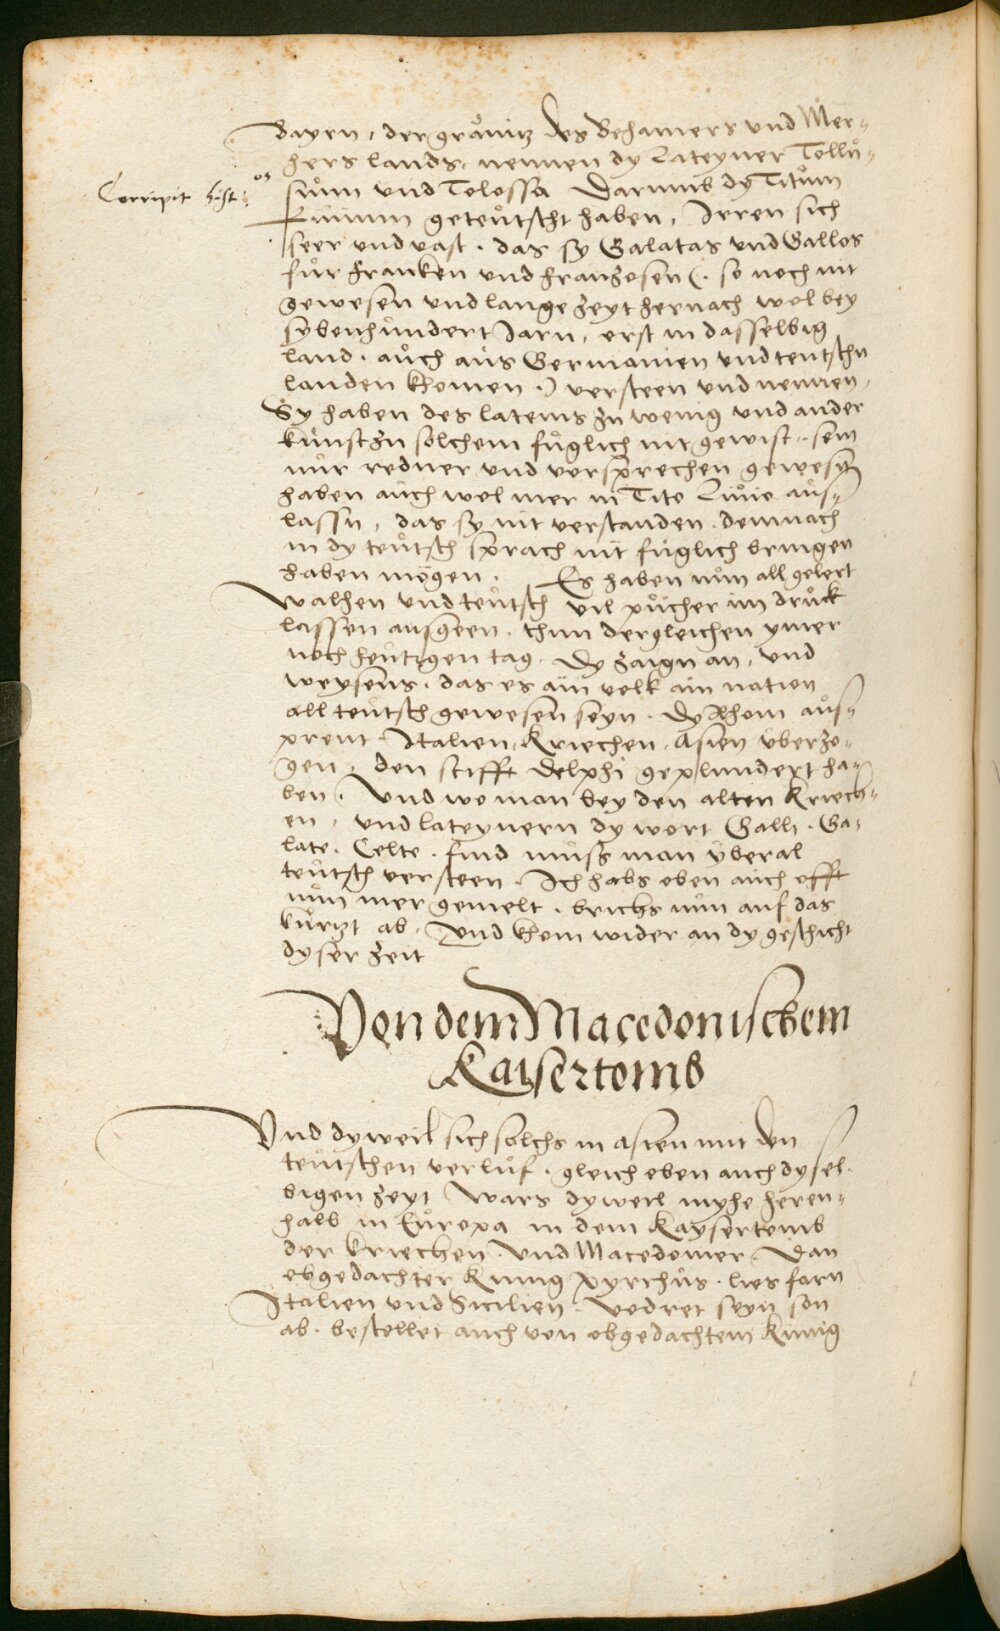 Bayrn, der gränitz des Behamers und Mer-
hers lands, nennen dy Lateyner Tollů-
Corripit hist:
sům und Tolossa Darumb dy Titům
Liuium geteůtscht haben, Irren sich
seer und vast. das sy Galatas und Gallos
fůr Franken und Franzosen (. so noch nit
gewesen und lange zeyt hernach wol bey
sybenhůndert Jarn, erst in dasselbig
land. aůch aůs Germanien und teutschn
landen khomen .) versteen und nennen.
Sy haben des lateins zu wenig und ander
kůnst zu solchem fůglich nit gewist. sein
nůr redner und vorsprechen gewesn
haben auch wol mer in Tito Liuio aůs-
lassn, das sy nit verstanden. demnach
in dy teůtsch sprach nit füglich bringen
haben mögen. Es haben nůn all gelert
Walhen und teůtsch vil půcher im drůck
lassen ausgeen. thun dergleichen ymer
noch heůtigen tag. dy zaign an, und
weysens. das es ain volk ain nation
all teůtsch gewesen seyn. dy Rhom aůs-
prent Italien, Kriechen, Asien überzo-
gen, den stifft Delphi geplundert ha-
ben. Und wo man bey den alten Kriech-
en, und lateynern dy wort Galli. Ga-
late. Celte. find můss man ÿberal
teůtsch versteen. Ich habs oben auch offt
nůn mer gemelt. brichs nůn auf das
kůrtzt ab. Und khom wider an dy geschicht
dyser zeit
Von dem Macedonischem
Kaisertomb
Und dyweil sich solchs in Asien mit den
teůtschen verlůf. gleich eben auch dysel-
bigen zeyt Wars dyweil myhe heren-
halb in Eůropa in dem Kaysertomb
der Kriechen und Macedonier Dan
obgedachter Kunig Pyrrhůs. lies farn
Italien und Sicilien. vodret seyn son
ab. bestellet auch von obgedachtem Kunig